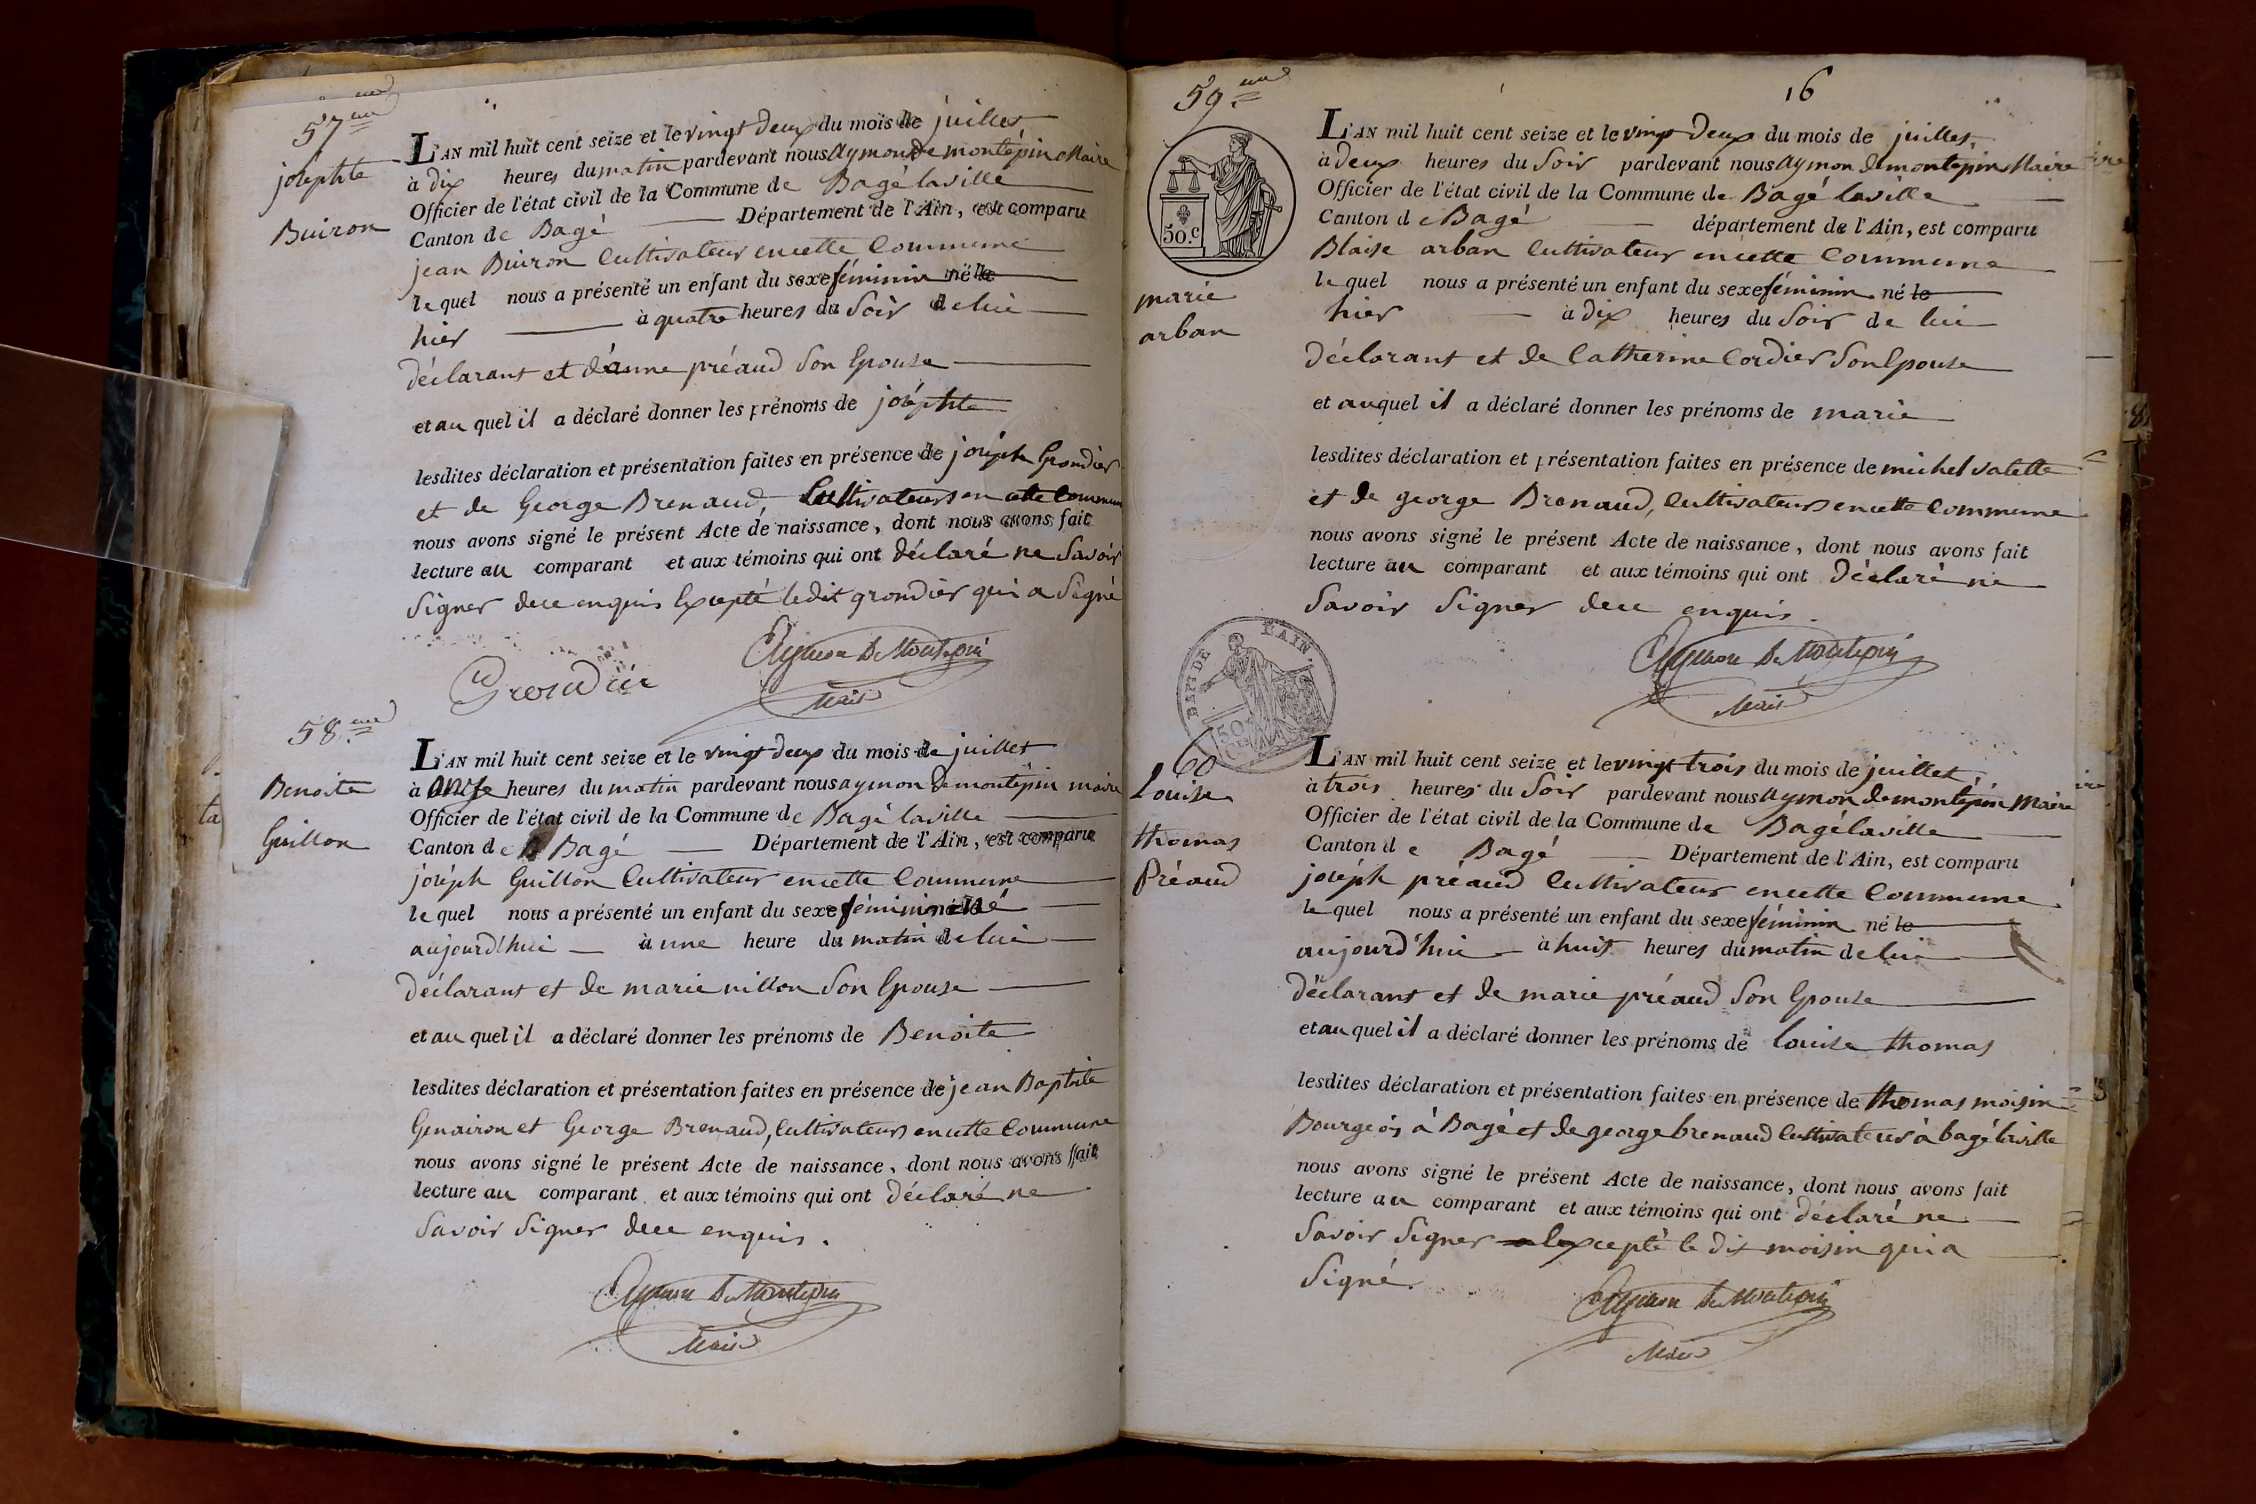 57eme
josephte
Buiron
L'AN mil huit cent seize et le vingt deux du mois de juillet
à dix heures du matin pardevant nous Aymon de montépin Maire
Officier de l'état civil de la Commune de Bagé laville
Canton de Bagé Département de l'Ain, est comparu
jean Buiron Cultivateur en cette Commune
le quel nous a présenté un enfant du sexe féminin né le
hier à quatre heures du Soir de lui
déclarant et d'anne préaud Son Epouse
et au quel il a déclaré donner les prénoms de joséphte
lesdites déclaration et présentation faites en présence de joséph Grondier
et de George Brenaud, Cultivateurs en cette Commune
nous avons signé le présent Acte de naissance, dont nous avons fait
lecture au comparant et aux témoins qui ont déclaré ne Savoir
Signer dece enquis Excepté ledit grondier qui a Signé
Grondier
Aymon De Montepin
Maire
58.eme
Benoite
Guillon
L'AN mil huit cent seize et le vingt deux du mois de juillet
à onze heures du matin pardevant nous aymon de montépin maire
Officier de l'état civil de la Commune de Bagé laville
Canton de Bagé Département de l'Ain, est comparu
joséph Guillon Cultivateur en cette Commune
le quel nous a présenté un enfant du sexe féminin né
aujourd'hui à une heure du matin de lui
déclarant et de marie nillon Son Epouse
et au quel il a déclaré donner les prénoms de Benoite
lesdites déclaration et présentation faites en présence de jean Baptiste
Genairon et George Brenaud, Cultivateurs en cette Commune
nous avons signé le présent Acte de naissance, dont nous avons fait
lecture au comparant et aux témoins qui ont déclaré ne
Savoir Signer dece enquis.
Aymon De Montepin
Maire
16
59.eme
50.c
marie
arban
L'AN mil huit cent seize et le vingt deux du mois de juillet,
à deux heures du Soir pardevant nous Aymon de montépin Maire
Officier de l'état civil de la Commune de Bagé laville
Canton de Bagé département de l'Ain, est comparu
Blaise arban Cultivateur en cette Commune
le quel nous a présenté un enfant du sexe féminin né le
hier à dix heures du Soir de lui
déclarant et de Catherine Cordier Son Epouse
et auquel il a déclaré donner les prénoms de marie
lesdites déclaration et présentation faites en présence de michel valette
et de george Brenaud, Cultivateurs en cette Commune
nous avons signé le présent Acte de naissance, dont nous avons fait
lecture au comparant et aux témoins qui ont déclaré ne
Savoir Signer dece enquis.
Aymon De Montepin
Maire
DEPT DE L'AIN.
50
60
Louise
thomas
Préaud
L'AN mil huit cent seize et le vingt trois du mois de juillet
à trois heures du Soir pardevant nous Aymon de montépin Maire
Officier de l'état civil de la Commune de Bagé laville
Canton de Bagé Département de l'Ain, est comparu
joséph préaud Cultivateur en cette Commune
le quel nous a présenté un enfant du sexe féminin né le
aujourd'hui à huit heures du matin de lui
déclarant et de marie préaud Son Epouse
et au quel il a déclaré donner les prénoms de Louise thomas
lesdites déclaration et présentation faites en présence de thomas moisin
Bourgeois à Bagé et de george brenaud Cultivateur à bagé laville
nous avons signé le présent Acte de naissance, dont nous avons fait
lecture au comparant et aux témoins qui ont déclaré ne
Savoir Signer Excepté le dit moisin qui a
Signé
Aymon De Montepin
Maire